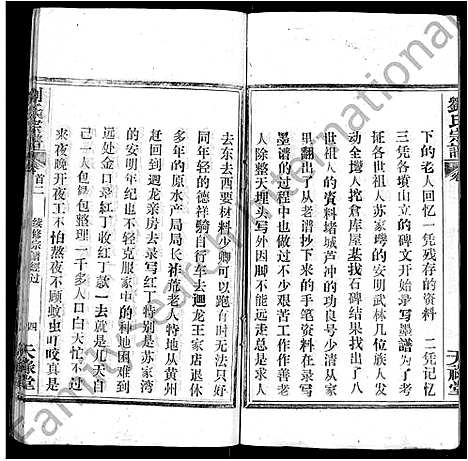 劉氏宗譜
天祿堂
下的老人回忆一凭残存的资料 二凭记忆
三凭各墳山立的碑文开始录写墨谱 为了
动全塆人挖倉库屋基找石碑结果找出了八
世祖人的资料堵城芦冲的功良号少清台
里翻出了从老谱抄下来的手笔资料在录写
墨谱的过程中也做过不少艰苦工作作善老
人除整天埋头写外因脚不能走他安排作润
去东去西要材料少卿可以跑有时无法只好
同年轻的德祥騎自行车去迴龙王家店联系
多年的原水产局局长袝蓰老人特地从黄州
赶来到迴龙亲房去录写红丁特别是苏家湾
的安明年纪也不轻克服家中的种地困难到
远处金口录红丁收红丁款一去就是几天自
己一人包錄包整理二千多人口白天忙不过
来夜晚开夜工不怕熬夜不顾蚊虫叮咬真是
劉氏宗譜
卷首二
续修宗谱經过
四
天祿堂
Family Search International